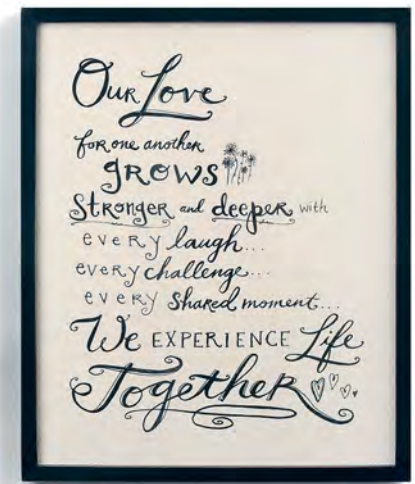 Our Love
for one another
GROWS
Stronger and deeper with
every laugh...
every challenge...
every shared moment...
We EXPERIENCE Life
Together